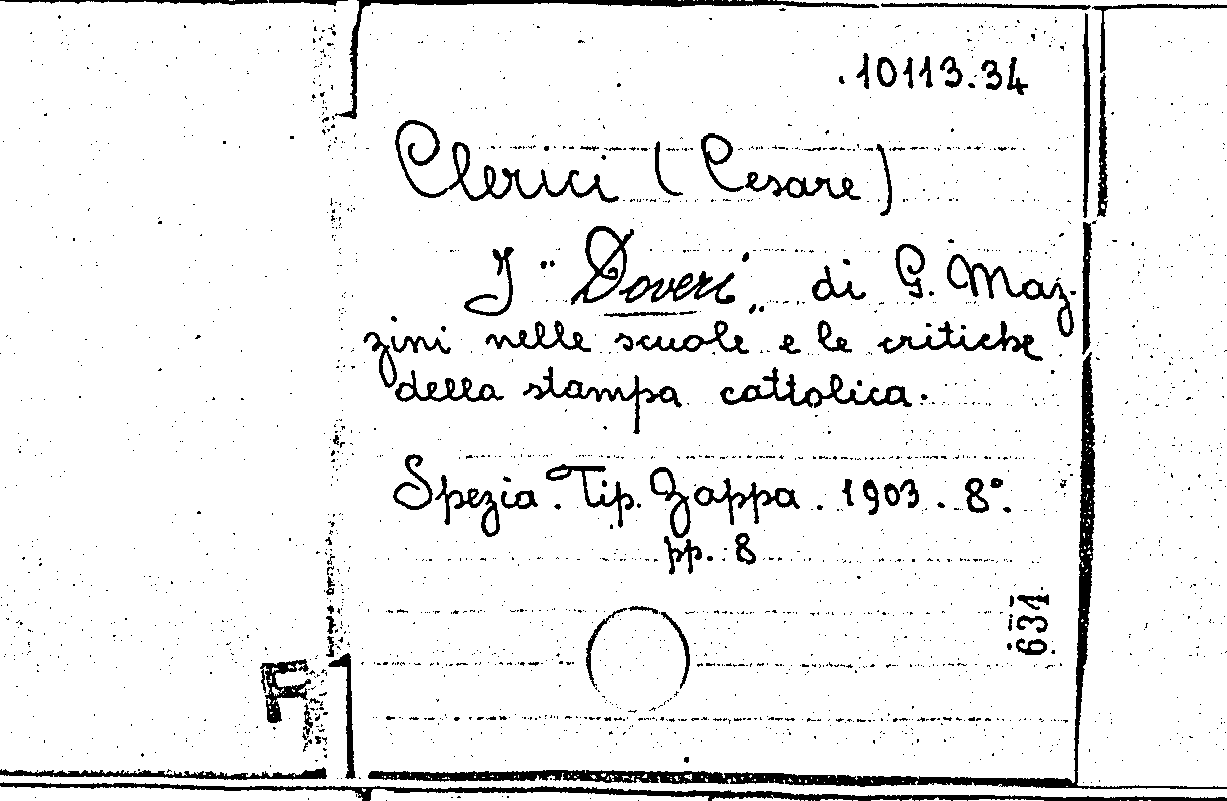 .10113.34
Clerici (Cesare)
I "Doveri„ di G. Maz-
zini nelle scuole e le critiche
della stampa cattolica.
Spezia. Tip. Zappa. 1903. 8°.
pp. 8
634
F